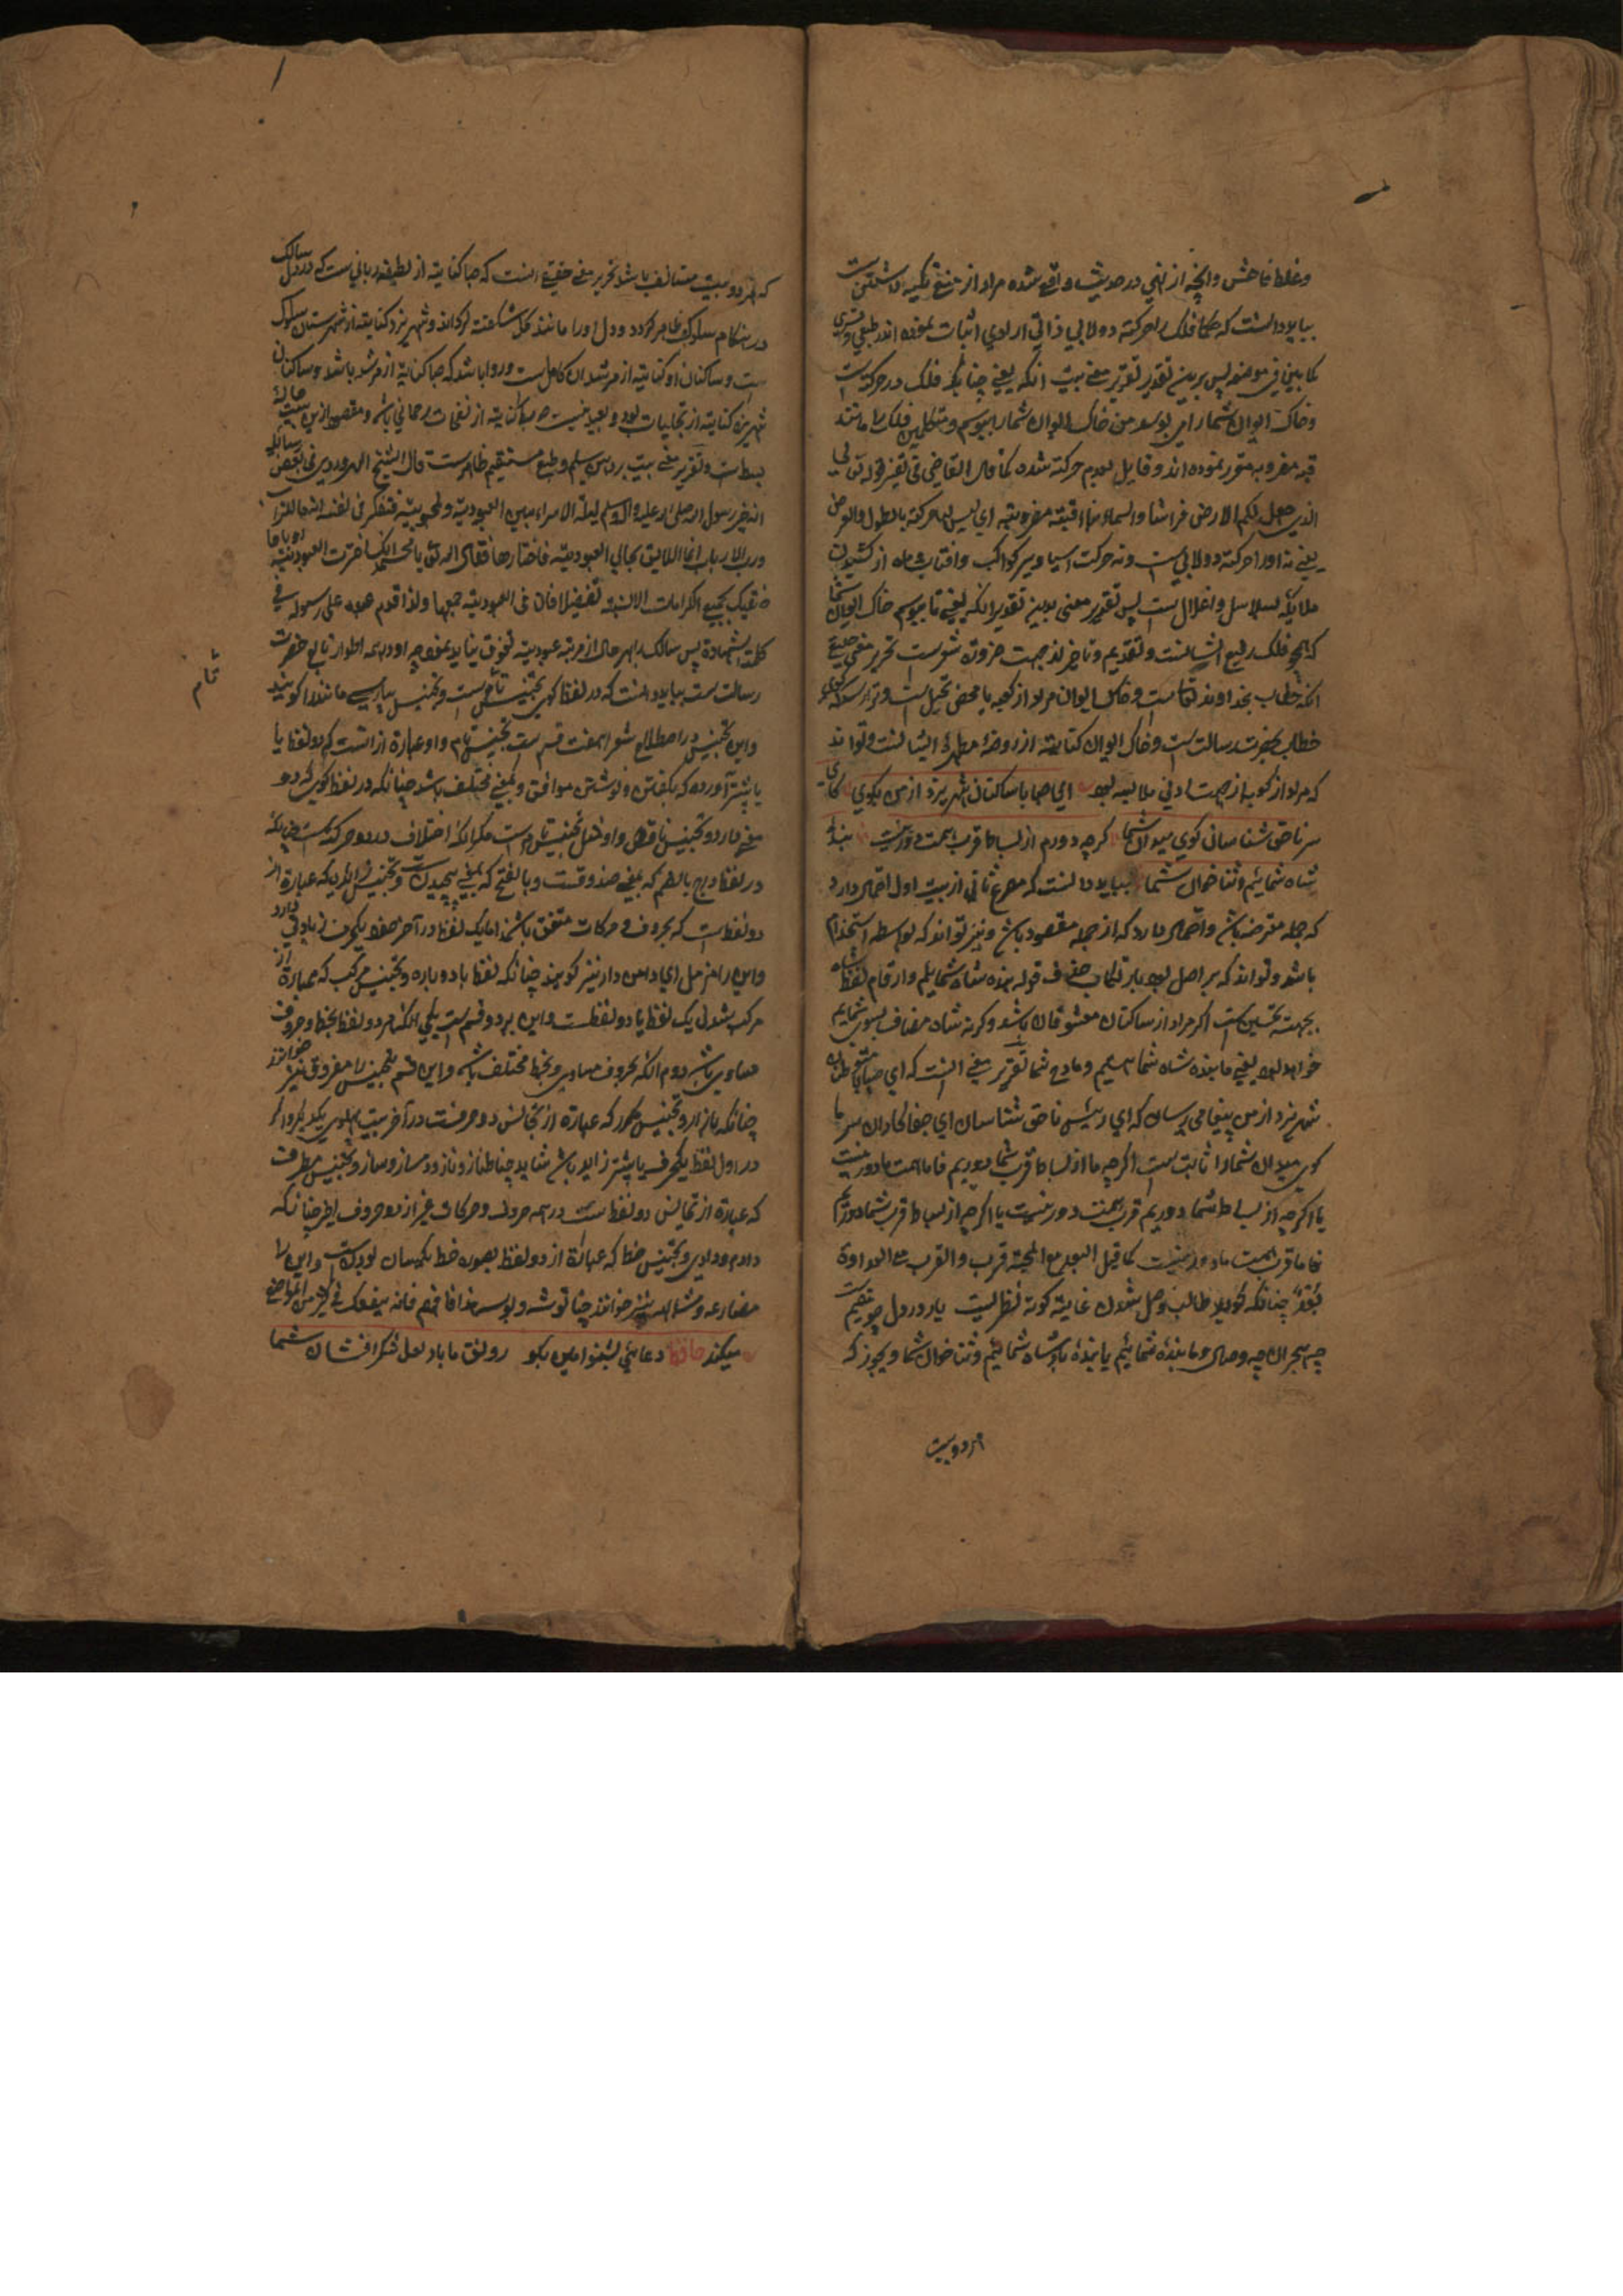 وغلط فاحش وانچه از نهی در حدیث واقع شده مراد از منع تکیه داشتن ست
بباید دانست که حکما فلک را حرکته دولابی ذاتی ارادی اثبات نموده اند طبعی و قسری
کما بین فی موضعه پس برین تقدیر تقریر معنی بیت آنکه یعنی چنانکه فلک در حرکت ست
وخاک ایوان شما را می بوسد من خاک ایوان شما را ببوسم ومتکلمین فلک را مانند
قبه مضروبه مقرر نموده اند وقایل بعدم حرکته شده کما قال القاضی فی تفسیر قوله تعالی
الذی جعل لکم الارض فراشا والسماء بناء ای قبة مضروبة ای لیس لها حرکة بالطول والعرض
یعنی نه او را حرکته دولابی ست ونه حرکت آسیا وسیر کواکب وآفتاب وماه از کشیدن
ملایکه بسلاسل واغلال ست پس تقدیر معنی بدین تقدیر آنکه یعنی تا ببوسم خاک ایوان شما
که همچو فلک رفیع الشان ست وتقدیم وتاخیر از جهت ضرورة شعرست تحریر معنی حقیقی
آنکه خطاب بخداوند تعالی ست وخاک ایوان مراد از کعبه یا محض تخیل است و
خطاب بحضرت رسالت ست وخاک ایوان کنایته از روضه مطهره ایشانست وتواند
که مراد از کعبه از جهت ادنی ملابسه بود ای صبا با ساکنان شهر یزد از من بگوی کای
سر ناحق شناسان گوی میدان شما گرچه دورم از بساط قرب همت دور نیست بنده
شاه شمائیم وثنا خوان شما بباید دانست که مصرع ثانی از بیت اول احتمال دارد
که جمله معترضه باشد واحتمال دارد که از جمله مقصود باشد ونیز تواند که بواسطه استخدام
باشد وتواند که بر اصل بود بارتکاب حذف قوله بنده شاه شمائیم وارقام لفظ شاه
بجهته تحسین ست اگر مراد از ساکنان معشوقان باشد وگرنه شاه مضاف بسوی شمائیم
خواهد بود یعنی ما بنده شاه شما هستیم ومادح شما تقریر معنی آنست که ای صبا با متوطنان
شهر یزد از من پیغامی رسان که ای رئیس ناحق شناسان ای جفا کاران سر ما
گوی میدان شما را ثابت ست اگرچه ما از بساط قرب شما دوریم فاما همت ما دور نیست
یا اگرچه از بساط شما دوریم قرب همت دور نیست یا اگرچه از بساط قرب شما دوریم
فاما قرب همت ما دور نیست کما قیل البعد مع المحبة قرب والقرب مع العداوة
بعد چنانکه گوید طالب وصل شدن غایته کوته نظریست یار در دل چو مقیم ست
چه هجران چه وصال وما بنده شمائیم یا بنده پادشاه شمائیم وثنا خوان شما ویجوز که
هر دو بیت
که هر دو بیت مستانف باشد تحریر معنی حقیقی آنست که صبا کنایته از لطیفه ربانی ست که در دل سالک
در هنگام سلوک ظاهر گردد ودل او را مانند گل شگفته گرداند وشهر یزد کنایته از شهرستان سلوک
ست وساکنان او کنایته از مرشدان کامل ست وروا باشد که صبا کنایته از مرشد باشد وساکنان
شهر یزد کنایته از تجلیات بود وبعید نیست که صبا کنایته از نفحات رحمانی باشد ومقصود ازین بیت حالة
بسط ست وتقریر معنی بیت بر ذهن سلیم وطبع مستقیم ظاهرست قال الشیخ السهروردی فی بعض رسائله
انه خیر رسول الله صلی الله علیه وآله وسلم لیلة الاسراء بین العبودیة والمحبوبیة فتفکر فی نفسه
ورب الارباب انما اللایق بحالی العبودیة فاختارها فقال الله تعالی یا محمد انک اخترت العبودیة
فعلیک بجمیع الکرامات الالهیة تفضیلا فان فی العبودیة جمیعها ولذا قدم عبده علی رسوله فی
کلمة الشهادة پس سالک را بهر حال از مرتبه عبودیته تفوق نباید نمود چه او در همه اطوار تابع حضرت
رسالت ست بباید دانست که در لفظ گوی تجنیس تام ست وتجنیس بسیارست
واین تجنیس در اصطلاح شعرا هفت قسم ست تجنیس تام واو عبارة از آنست که دو لفظ یا
بیشتر آورده که بگفتن ونوشتن موافق وبمعنی مختلف باشد چنانکه در لفظ گوی که دو
معنی دارد وتجنیس ناقص واو مثل تجنیس تام ست مگر آنکه اختلاف در دو حرکته ست چنانکه
در لفظ درج بالضم که بمعنی صندوقست وبالفتح که بمعنی پیچیدن ست وتجنیس زاید که عبارة از
دو لفظ ست که بحروف وحرکات متفق باشند اما یک لفظ در آخر خود یکحرف زیادتی دارد
واین را مذیل ای دامن دار نیز گویند چنانکه لفظ باد وباده وتجنیس مرکب که عبارة از
مرکب بودن یک لفظ یا دو لفظ ست واین بر دو قسم ست یکی آنکه هر دو لفظ بخط وحروف
مساوی باشد دوم آنکه بحروف مساوی وبخط مختلف باشد واین قسم تجنیس را مفروق نیز خوانند
چنانکه وتجنیس مکرر که عبارة از تجانس دو حرفست در آخر بیت پهلوی یکدیگر واگر
در اول لفظ یکحرف یا بیشتر زاید باشد شاید چنانکه وتجنیس مطرف
که عبارة از تمایش دو لفظ ست در همه حروف وحرکات غیر از دو حروف اخیر چنانکه
وتجنیس خط که عبارة از دو لفظ بصورة خط یکسان بودن ست واین را
مضارعه ومشابهه نیز خوانند چنانکه توشه وبوسه هذا فافهم فانه ینفعک فی کثیر من المواضع
میکند حافظ دعائی بشنو آمین بگو روزی ما باد لعل شکر افشان شما
تام